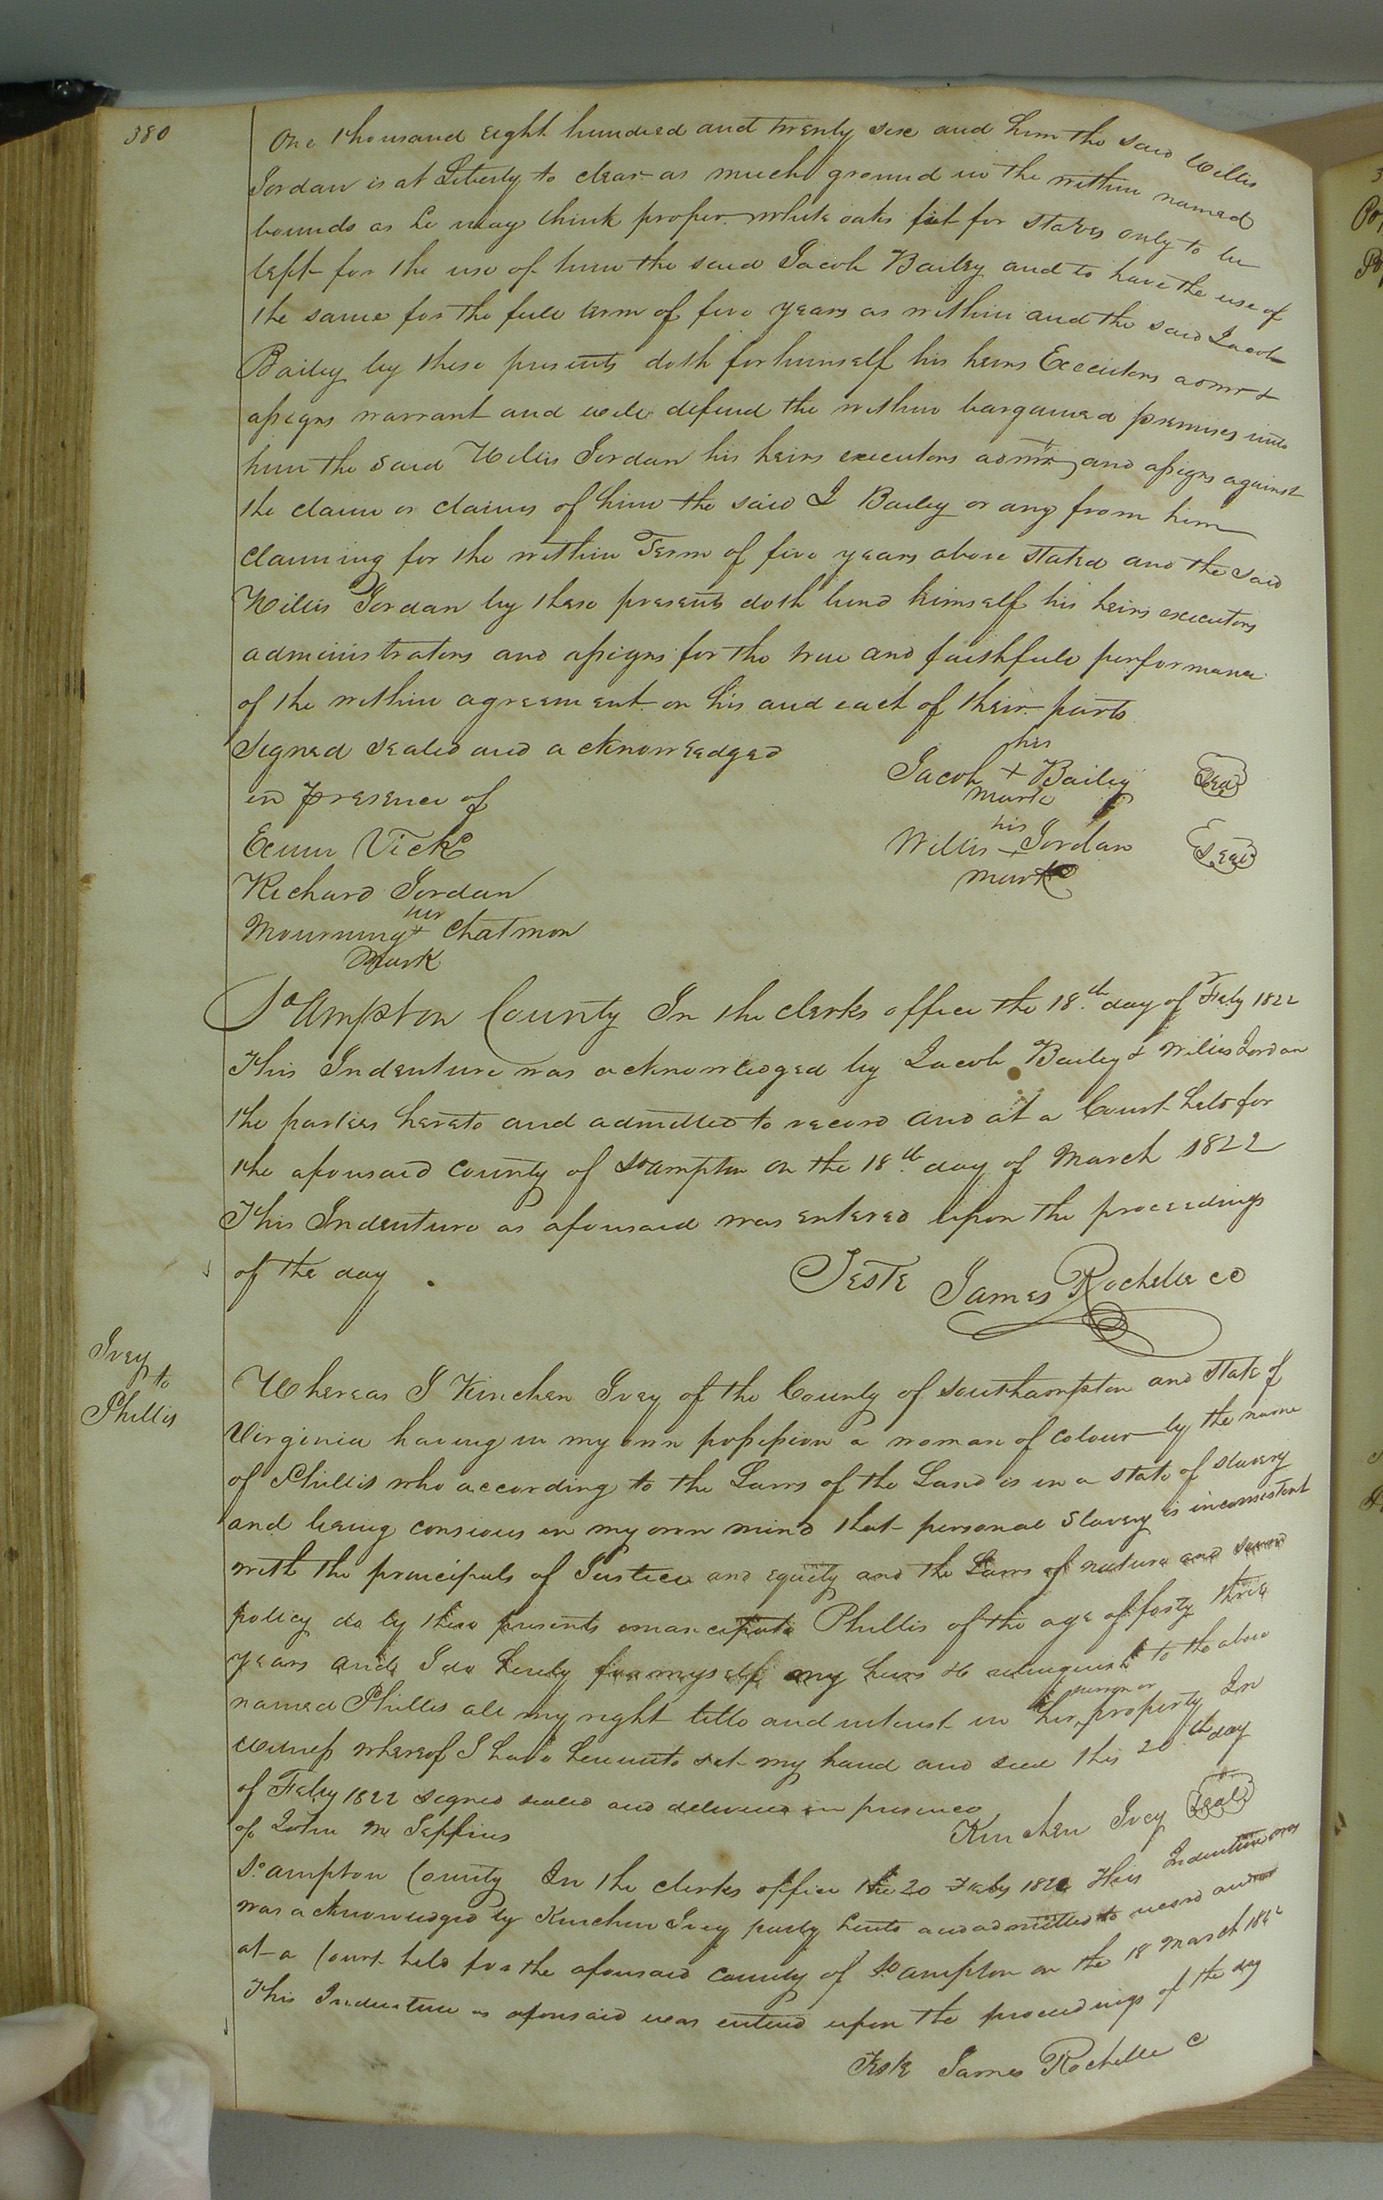 380
One thousand eight hundred and twenty six and him the said Willis
Jordan is at Liberty to clear as much ground in the within named
bounds as he may think proper white oaks fit for staves only to be
left for the use of him the said Jacob Bailey and to have the use of
the same for the full term of five years as within and the said Jacob
Bailey by these presents doth for himself his heirs Executors admr &
assigns warrant and will defend the within bargained premises unto
him the said Willis Jordan his heirs executors admr and assigns against
the claim or claims of him the said J Bailey or any from him
claiming for the within Term of five years above stated and the said
Willis Jordan by these presents doth bind himself his heirs executors
administrators and assigns for the true and faithfull performance
of the within agreement on his and each of their parts
Signed sealed and acknowledged
in presence of
his
Jacob + Bailey Seal
mark
Exum Vick
his
Willis + Jordan Seal
mark
Richard Jordan
her
Mourning + Chatmon
Mark
So Ampton County In the clerks office the 18th day of Feby 1822
This Indenture was acknowledged by Jacob Bailey & Willis Jordan
the parties hereto and admitted to record and at a Court held for
the aforesaid county of So ampton on the 18th day of March 1822
This Indenture as aforesaid was entered upon the proceedings
of the day
Teste James Rochelle CC
Ivey
to
Phillis
Whereas I Kinchen Ivey of the County of Southampton and State of
Virginia having in my own possession a woman of colour by the name
of Phillis who according to the Laws of the Land is in a state of slavery
and being conscious in my own mind that personal Slavery is inconsistent
with the principals of Justice and equity and the Laws of nature and sound
policy do by these presents emancipate Phillis of the age of forty three
years and I do hereby for myself my heirs &c relinquish to the above
named Phillis all my right title and interest in her person or property In
witness whereof I have hereunto set my hand and seal this 20th day
of Feby 1822 signed sealed and delivered in presence
of John M Jeffries
Kinchen Ivey Seal
So ampton County In the clerks office the 20 Feby 1822 This Indenture was
was acknowledged by Kinchen Ivey party hereto and admitted to record and
at a Court held for the aforesaid county of So ampton on the 18 March 1822
This Indenture as aforesaid was entered upon the proceedings of the day
Teste James Rochelle C